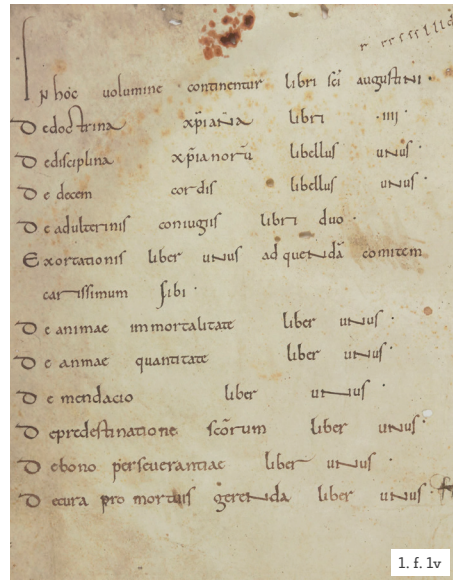 r r r r r r l l l d
In hoc uolumine continentur libri sc̄i augustini ·
Dedoctrina xp̄iana libri · IIII
Dedisciplina xp̄ianorū libellus unus ·
De decem cordis libellus unus ·
De adulterinis coniugiis libri duo ·
Exortationis liber unus ad quendā comitem
carissimum sibi ·
De animae immortalitate liber unus ·
De animae quantitate liber unus ·
De mendacio liber unus ·
Depredestinatione sc̄orum liber unus ·
Debono perseuerantiae liber unus ·
Decura pro mortuis gerenda liber unus ·
1. f. 1v